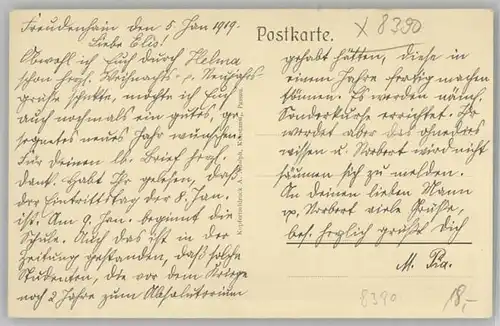 Freudenhain den 5. Jan 1919.
Liebe Elis!
Obwohl ich Euch durch Helma
schon herzl. Weihnachts- u. Neujahrs
grüße schickte, möchte ich Euch
auch nochmals ein gutes, ge-
segnetes neues Jahr wünschen.
Für deinen lb. Brief herzl.
Dank. Habt Ihr gelesen, daß
der Eintrittstag der 8. Jan.
ist. Am 9. Jan. beginnt die
Schule. Auch das ist in der
Zeitung gestanden, daß solche
Studenten, die vor dem Kriege
noch 2 Jahre zum Absolutorium
Postkarte.
X 8390
gehabt hätten, diese in
einem Jahre fertig machen
können. Es werden näml.
Sonderkurse errichtet. Ihr
werdet aber das ohnedies
wissen u. Norbert wird nicht
säumen sich zu melden.
An deinen lieben Mann
u. Norbert viele Grüße,
bes. herzlich grüßt dich
M. Pia.
8390
18,-
Kupfertiefdruck
Passau.